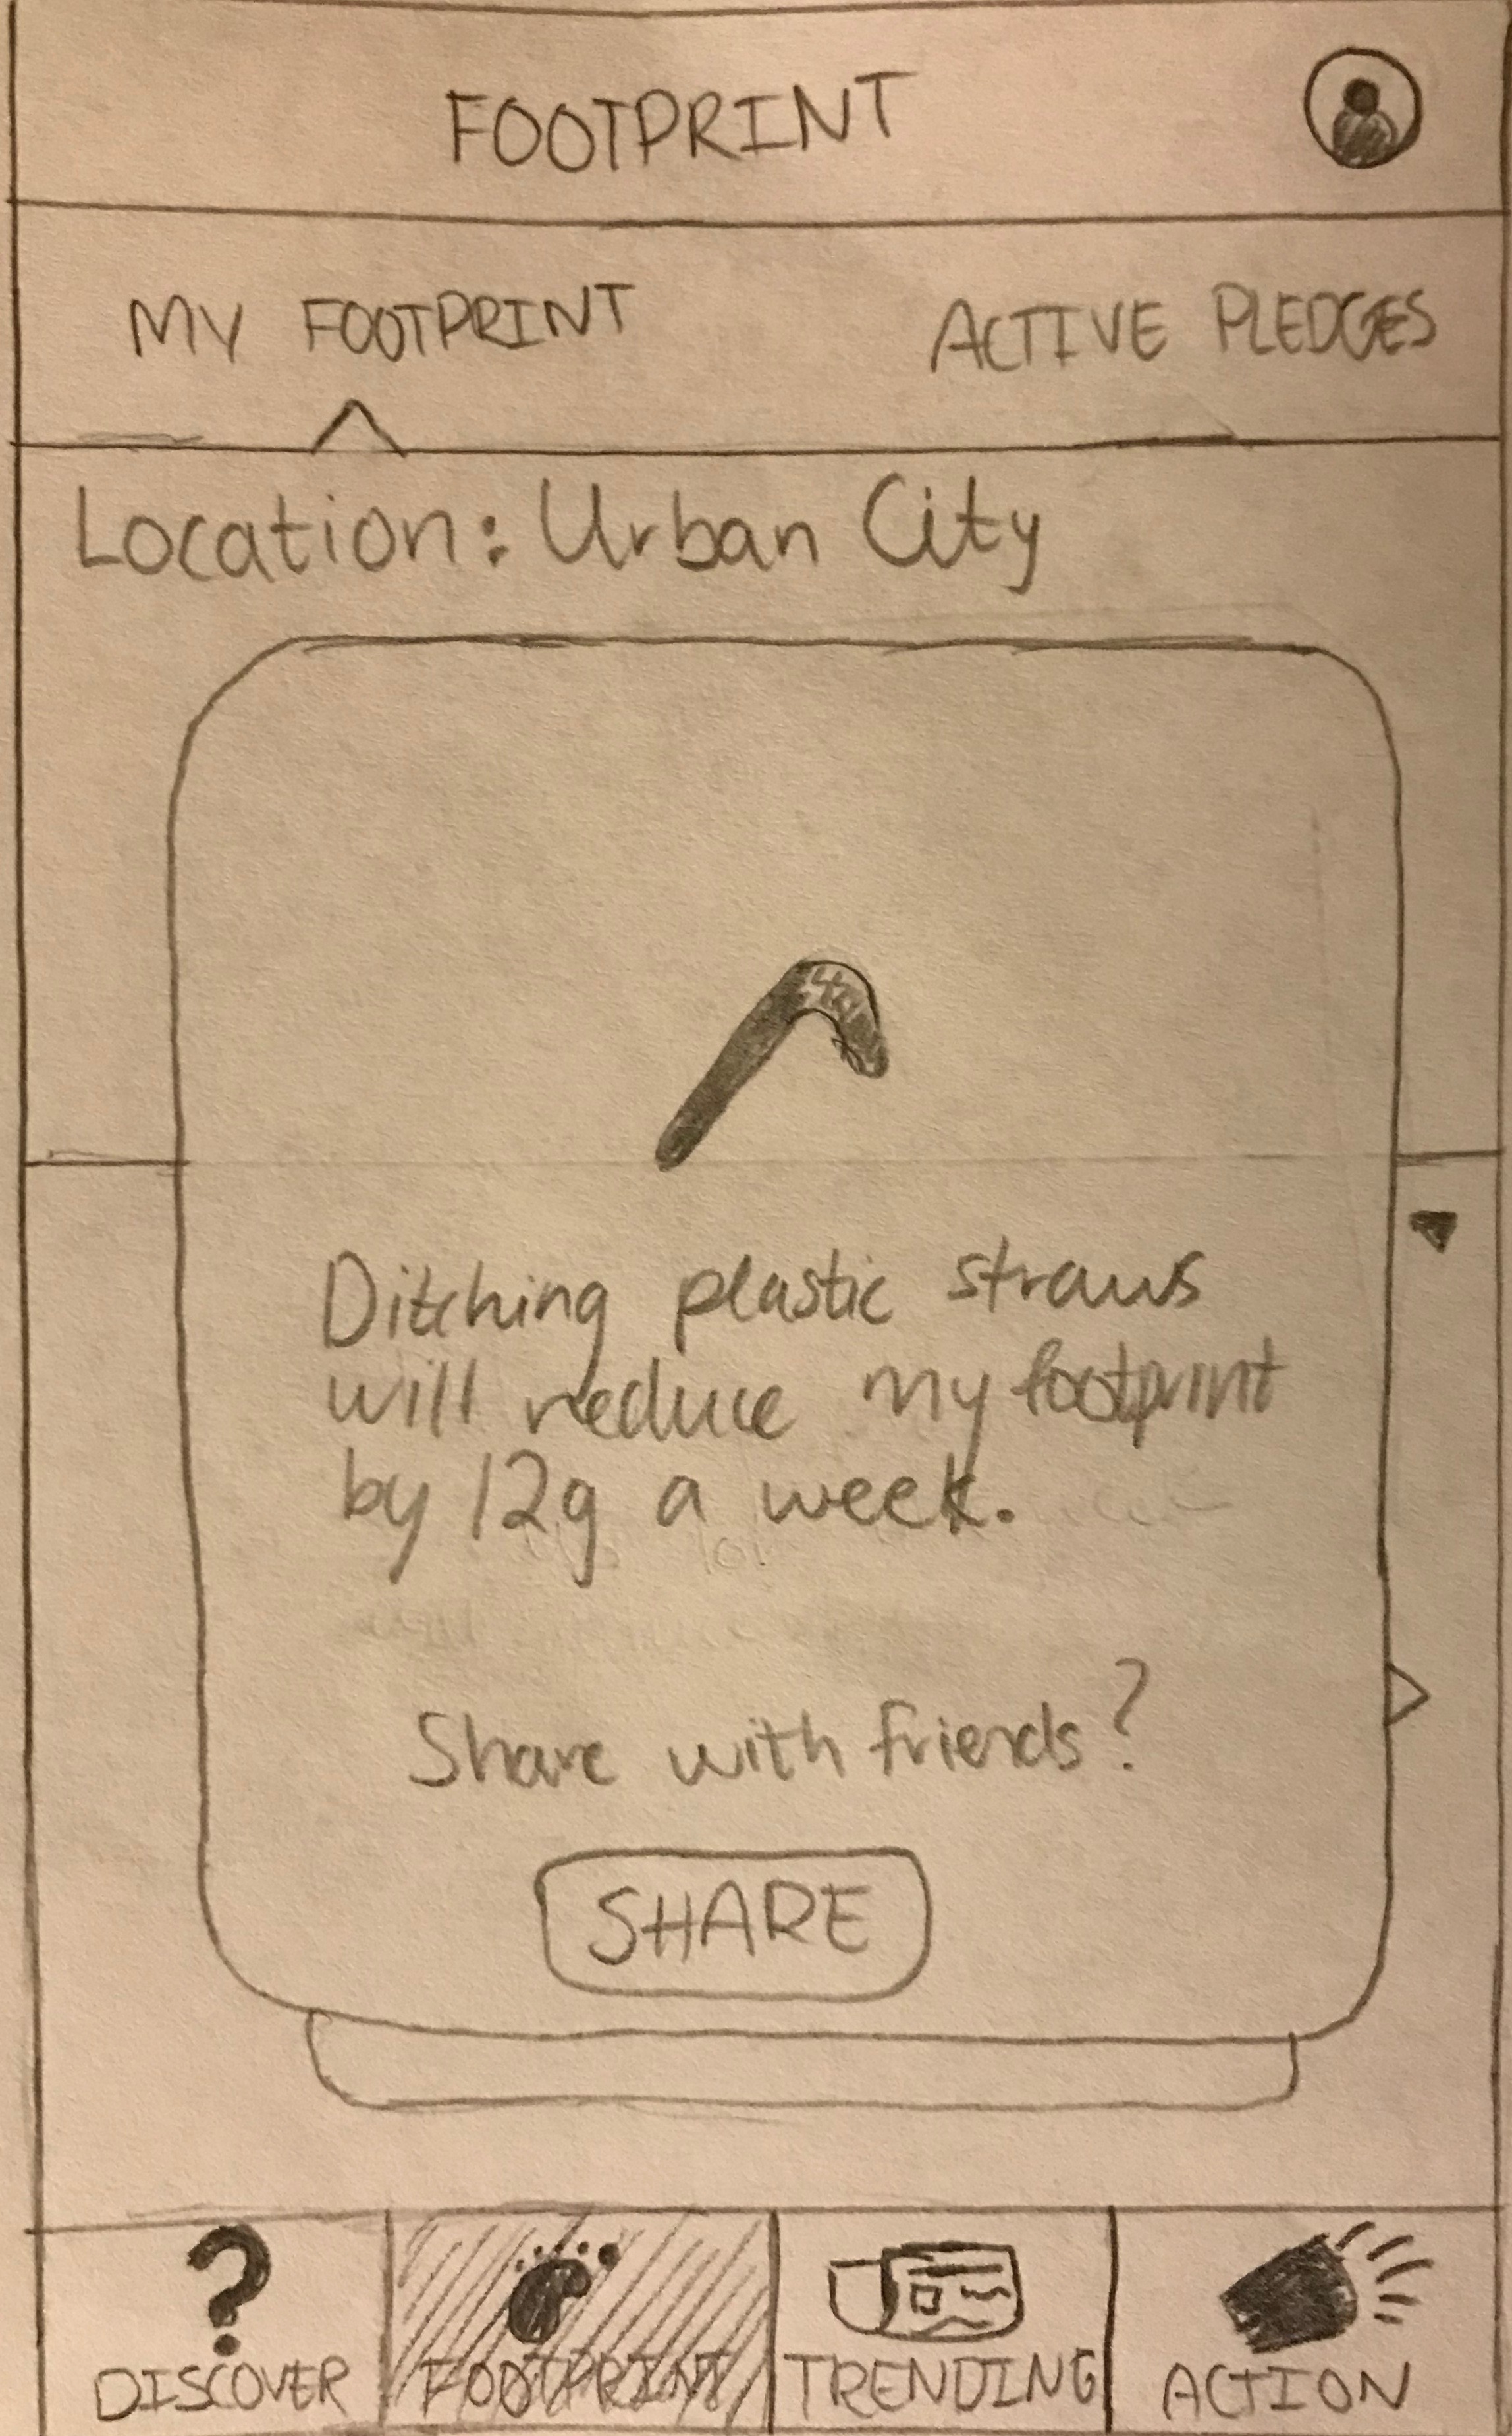 FOOTPRINT
MY FOOTPRINT
ACTIVE PLEDGES
Location: Urban City
Ditching plastic straws
will reduce my footprint
by 12g a week.
Share with friends?
SHARE
DISCOVER
FOOTPRINT
TRENDING
ACTION